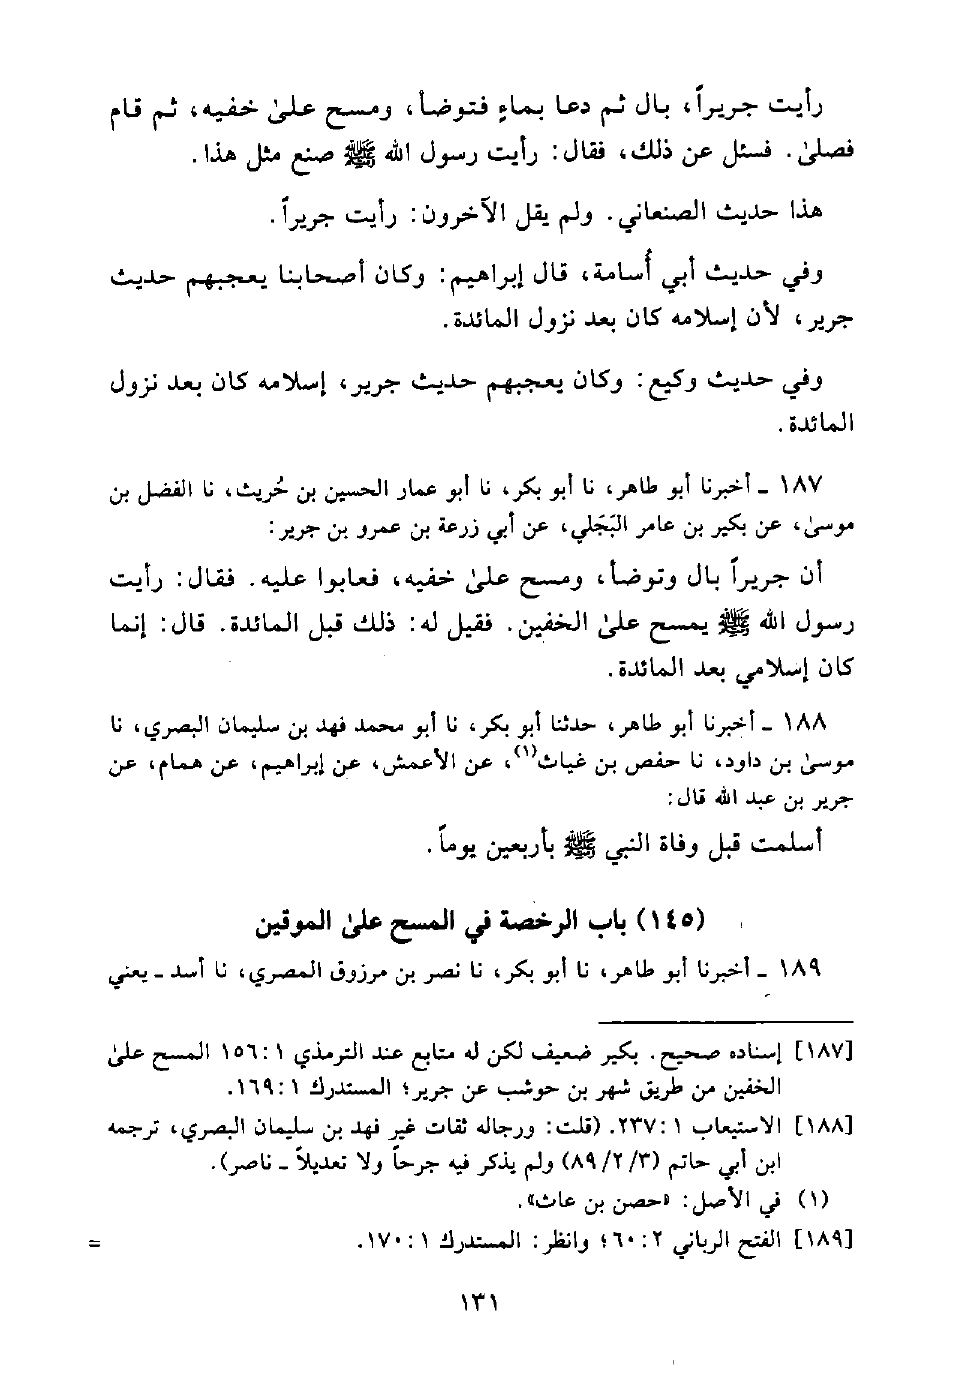 رأيت جريراً، بال ثم دعا بماءٍ فتوضأ، ومسح علىٰ خفيه، ثم قام
فصلىٰ. فسئل عن ذلك، فقال: رأيت رسول الله ﷺ صنع مثل هذا.
هذا حديث الصنعاني. ولم يقل الآخرون: رأيت جريراً.
وفي حديث أبي أُسامة، قال إبراهيم: وكان أصحابنا يعجبهم حديث
جرير، لأن إسلامه كان بعد نزول المائدة.
وفي حديث وكيع: وكان يعجبهم حديث جرير، إسلامه كان بعد نزول
المائدة.
١٨٧ ـ أخبرنا أبو طاهر، نا أبو بكر، نا أبو عمار الحسين بن حُريث، نا الفضل بن
موسىٰ، عن بكير بن عامر البَجَلي، عن أبي زرعة بن عمرو بن جرير:
أن جريراً بال وتوضأ، ومسح علىٰ خفيه، فعابوا عليه. فقال: رأيت
رسول الله ﷺ يمسح علىٰ الخفين. فقيل له: ذلك قبل المائدة. قال: إنما
كان إسلامي بعد المائدة.
١٨٨ ـ أخبرنا أبو طاهر، حدثنا أبو بكر، نا أبو محمد فهد بن سليمان البصري، نا
موسىٰ بن داود، نا حفص بن غياث(١)، عن الأعمش، عن إبراهيم، عن همام، عن
جرير بن عبد الله قال:
أسلمت قبل وفاة النبي ﷺ بأربعين يوماً.
(١٤٥) باب الرخصة في المسح علىٰ الموقين
١٨٩ ـ أخبرنا أبو طاهر، نا أبو بكر، نا نصر بن مرزوق المصري، نا أسد ـ يعني
[١٨٧] إسناده صحيح. بكير ضعيف لكن له متابع عند الترمذي ١:١٥٦ المسح علىٰ
الخفين من طريق شهر بن حوشب عن جرير؛ المستدرك ١:١٦٩.
[١٨٨] الاستيعاب ١:٢٣٧. (قلت: ورجاله ثقات غير فهد بن سليمان البصري، ترجمه
ابن أبي حاتم (٨٩/٢/٣) ولم يذكر فيه جرحاً ولا تعديلاً ـ ناصر).
(١) في الأصل: «حصن بن عاث».
[١٨٩] الفتح الرباني ٢:٦٠؛ وانظر: المستدرك ١:١٧٠. =
١٣١